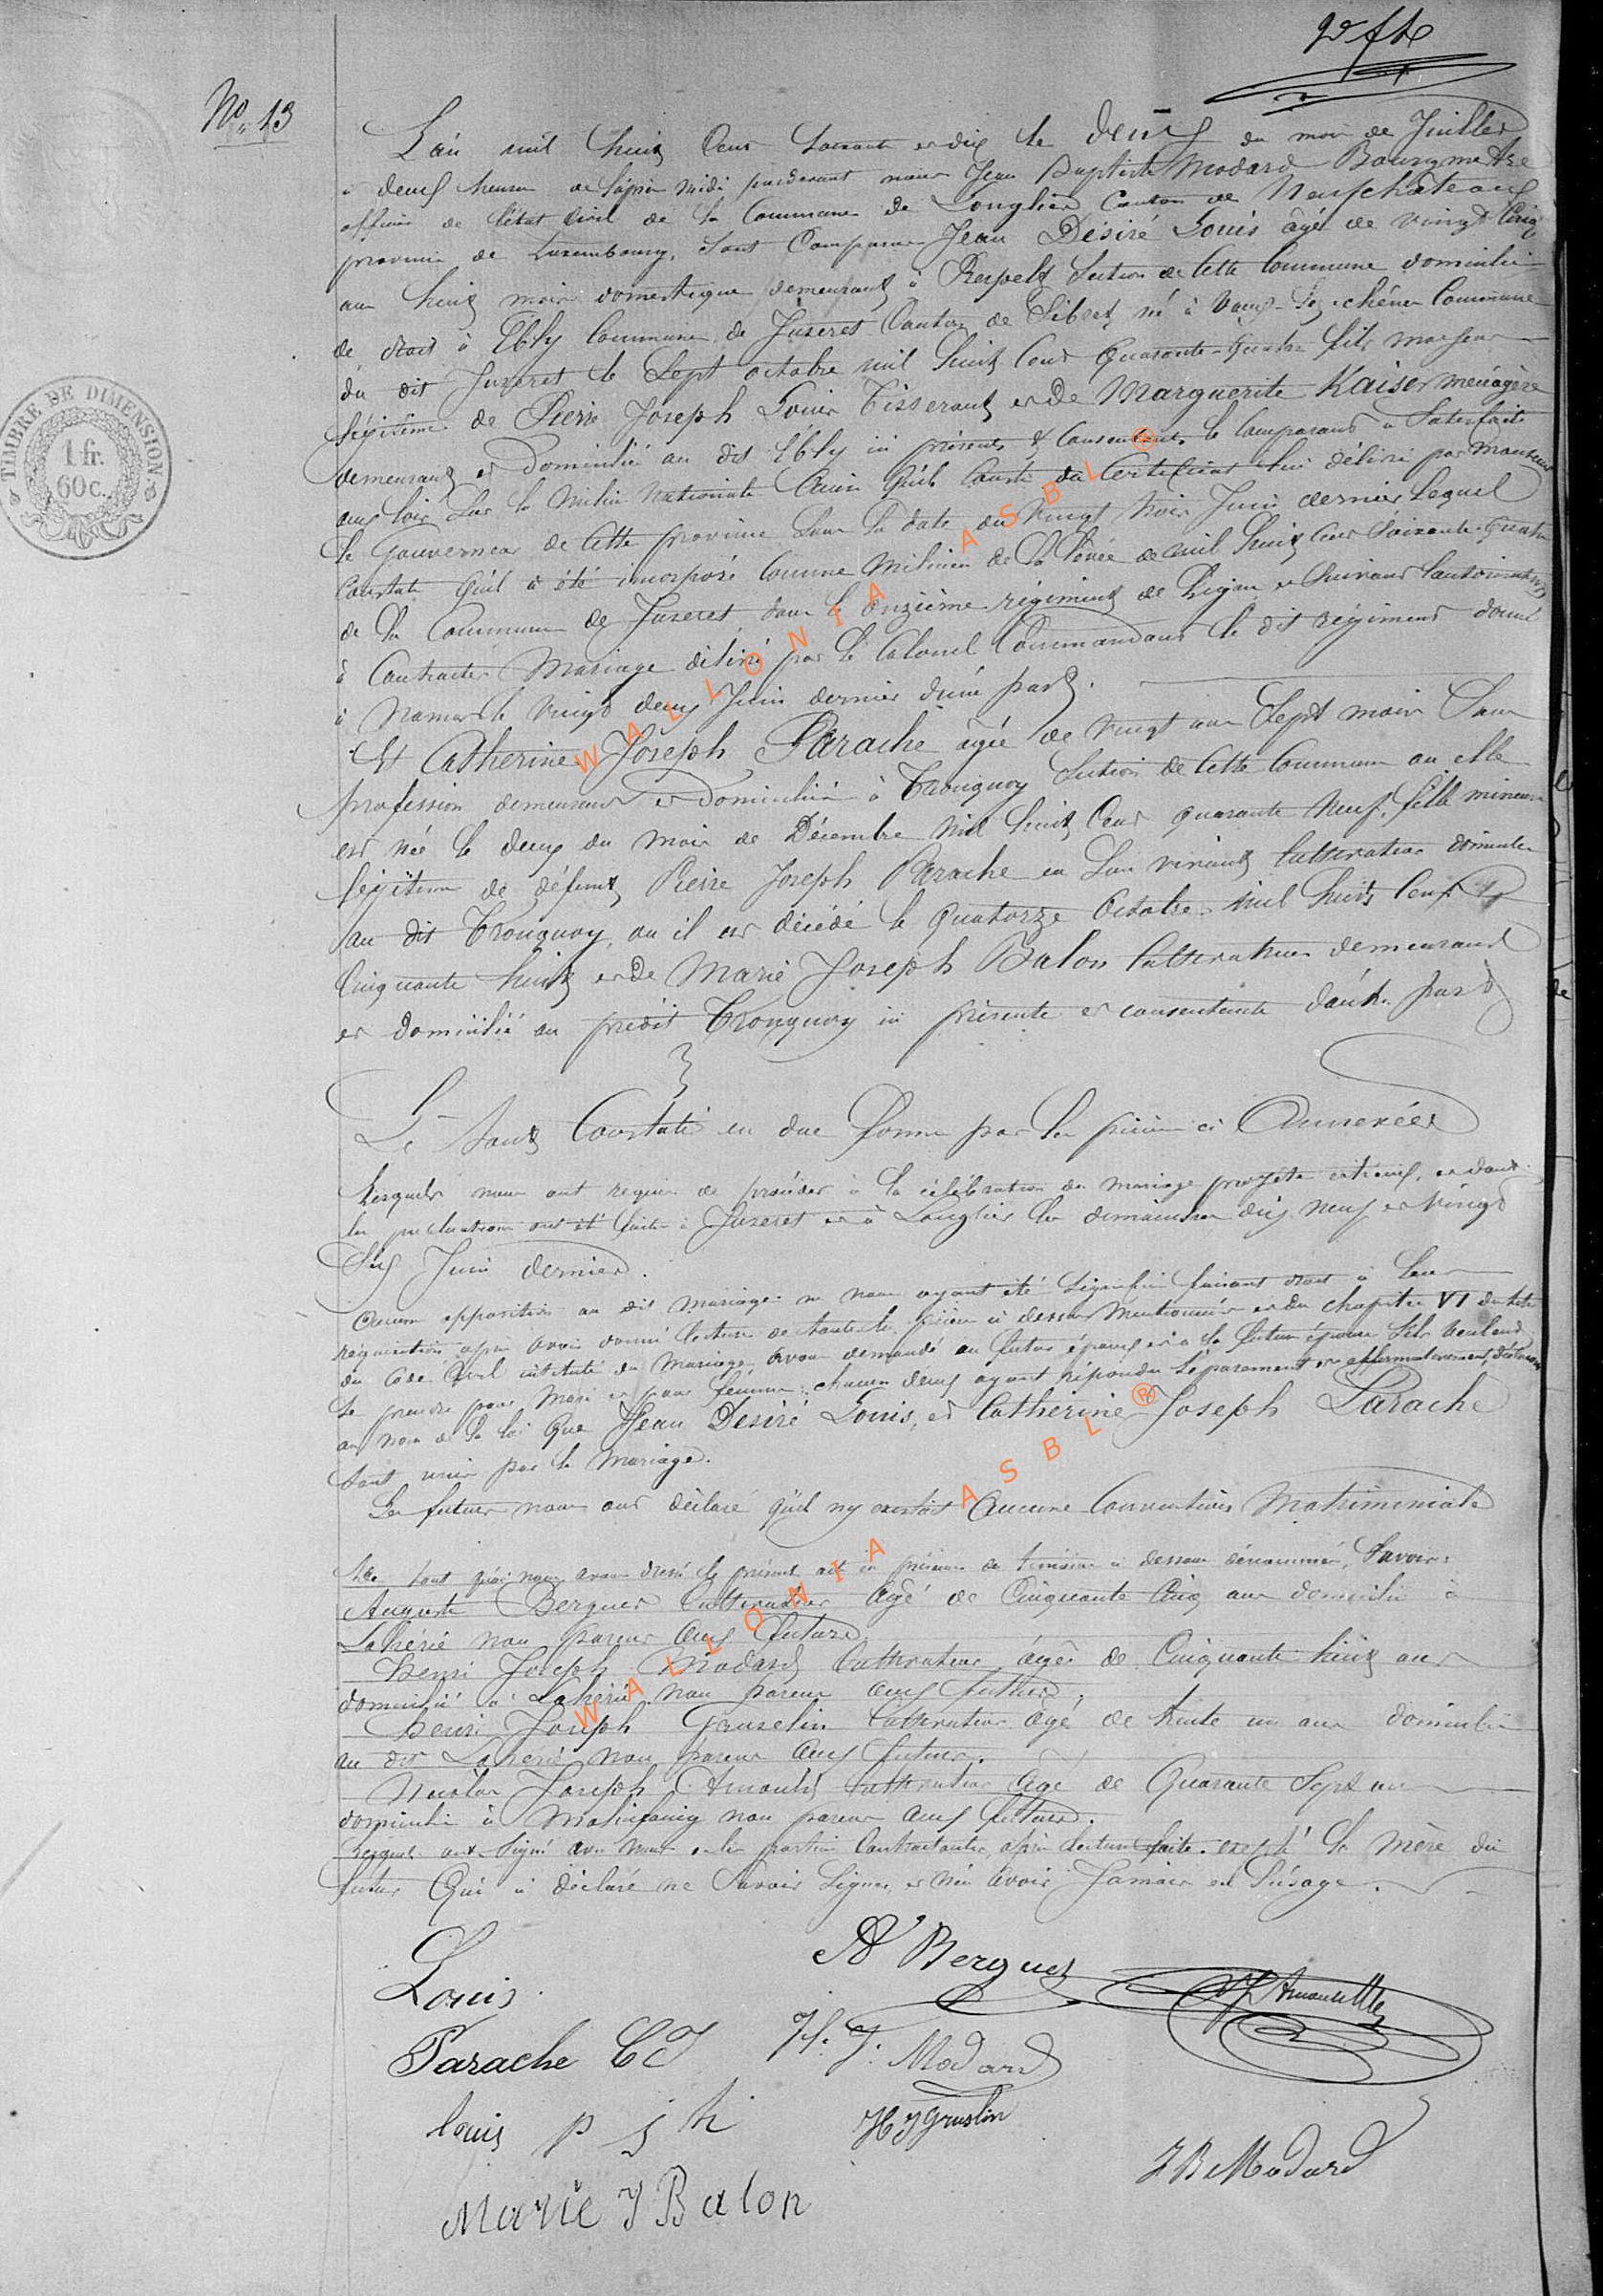 N° 13
TIMBRE DE DIMENSION
1 fr.
60 c.
L'an mil huit cent soixante et dix le deux du mois de Juillet
à deux heures de l'après midi pardevant nous Jean Baptiste Modard Bourgmestre
officier de l'état civil de la Commune de Longlier Canton de Neufchâteau
province de Luxembourg, sont Comparus Jean Désiré Louis âgé de vingt cinq
ans huit mois domestique demeurant à Respelt Section de Cette Commune domicilié
de droit à Ebly Commune de Juseret Canton de Sibret né à Vaux-lez-chênes Commune
du dit Juseret le Sept octobre mil huit Cent Quarante-quatre fils majeur
légitime de Pierre Joseph Louis Tisserant et de Marguerite Kaiser ménagère
demeurant et domicilié au dit Ebly ici présents & Consentants le Comparant a Satisfait
aux lois sur la Milice Nationale Ainsi qu'il Conste du Certificat lui délivré par Monsieur
le Gouverneur de Cette province sous la date du vingt trois Juin dernier lequel
Constate qu'il a été incorporé Comme Milicien de la levée de mil huit cent soixante-quatre
de la Commune de Juseret dans le onzième régiment de Ligne et suivant l'autorisation
à Contracter Mariage délivré par le Colonel Commandant le dit régiment donné
à Namur le vingt deux Juin dernier d'une part.
Et Catherine Joseph Parache âgée de vingt ans Sept mois Sans
profession demeurant et domiciliée à Tronquoy Section de Cette Commune où elle
est née le deux du mois de Décembre mil huit Cent quarante neuf, fille mineure
légitime de défunt Pierre Joseph Parache en Son vivant Cultivateur domicilié
au dit Tronquoy, où il est décédé le Quatorze Octobre mil huit Cent
Cinquante huit et de Marie Joseph Balon Cultivatrice demeurant
et domicilié au prédit Tronquoy ici présente et consentante d'autre part
Le tout Constaté en due forme par les pièces ci Annexées
Lesquels nous ont requis de procéder à la célébration du mariage projeté entre eux, et dont
les publications ont été faites à Juseret et à Longlier les dimanches dix neuf et vingt
Six Juin dernier.
Aucune opposition au dit mariage ne nous ayant été Signifiée faisant droit à leur
réquisition après avoir donné lecture de toutes les pièces ci dessus Mentionnées et du Chapitre VI du titre
du Code Civil intitulé du Mariage, Avons demandé au futur époux et à la future épouse S'ils veulent
se prendre pour Mari et pour femme: chacun d'eux ayant répondu Séparément et affirmativement, déclarons
au nom de la loi que Jean Désiré Louis, et Catherine Joseph Parache
Sont unis par le Mariage.
Les futurs nous ont déclaré qu'il n'y existait Aucune Convention Matrimoniale
De tout quoi nous avons dressé le présent acte en présence de témoins ci dessous dénommés, Savoir:
Auguste Berguet Cultivateur Agé de Cinquante Cinq ans domicilié à
Lahérie non parent aux futurs.
Henri Joseph Modard Cultivateur âgé de Cinquante huit ans
domicilié à Lahérie non parent aux futurs.
Henri Joseph Gruselin Cultivateur âgé de trente un ans domicilié
au dit Lahérie non parent aux futurs.
Nicolas Joseph Arnould Cultivateur âgé de Quarante Sept ans
domicilié à non parent aux futurs.
Lesquels ont signé avec nous et les parties Contractantes, après lecture faite. excepté la mère du
futur Qui a déclaré ne Savoir Signer et n'en avoir Jamais eu l'usage.
Louis
A Berguet
Parache C J
H. J. Modard
louis p j
H J Gruslin
J B Modard
Marie J Balon
WALLONIA ASBL ®
WALLONIA ASBL ®